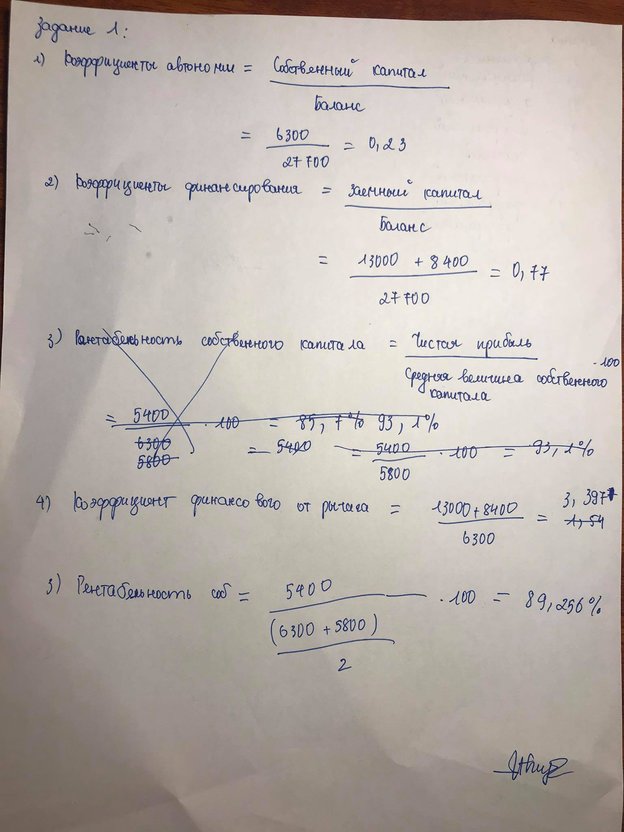 Задание 1:
1) Коэффициенты автономии = Собственный капитал
Баланс
= 6300
27700 = 0,23
2) Коэффициенты финансирования = Заемный капитал
Баланс
= 13000 + 8400
27700 = 0,77
3) Рентабельность собственного капитала = Чистая прибыль
Средняя величина собственного капитала · 100
= 5400 · 100 = 85,7% 93,1%
6300
5800
= 5400 = 5400 · 100 = 93,1%
5800
4) Коэффициент финансового от рычага = 13000+8400
6300 = 3,397
1,54
3) Рентабельность соб = 5400 · 100 = 89,256%
(6300 + 5800)
2